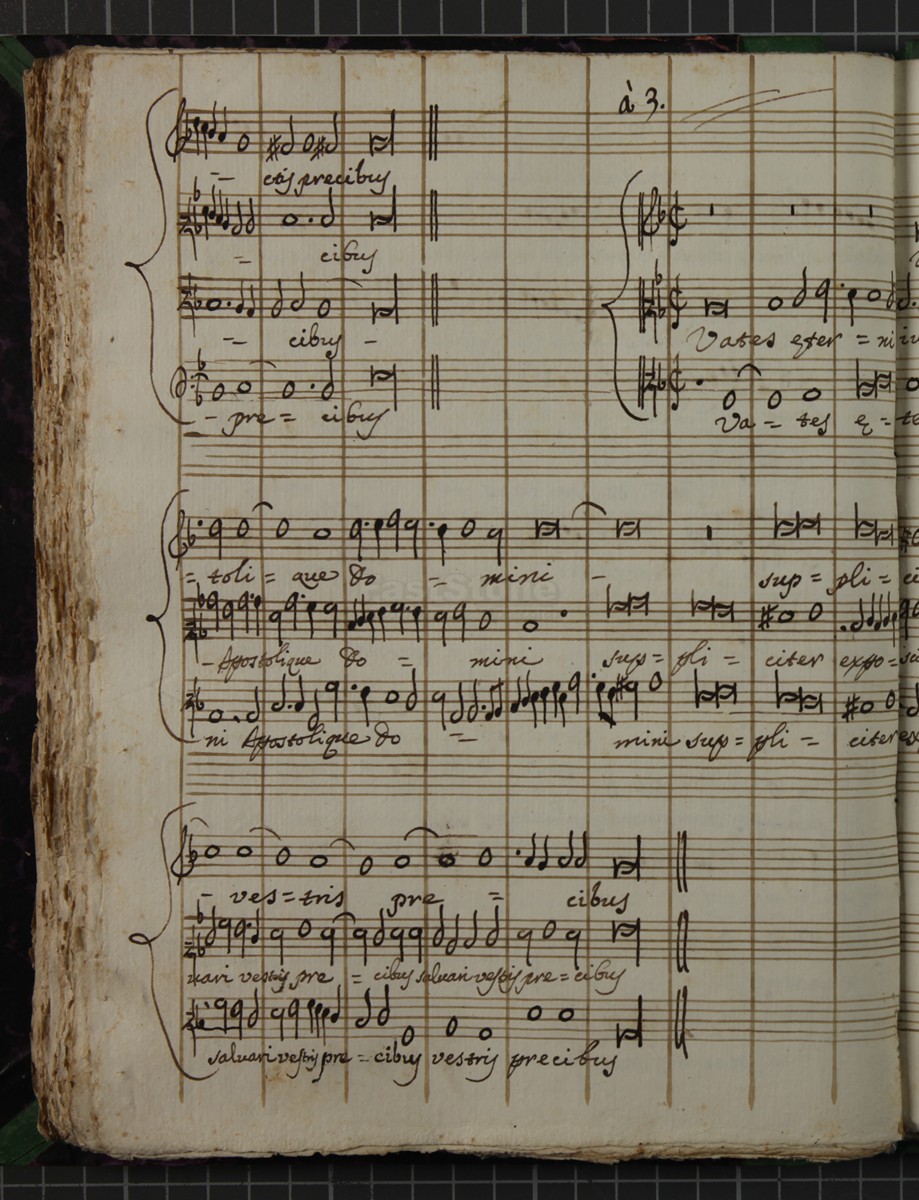 à 3.
= ctis precibus
= cibus
= cibus -
- pre = cibus
Vates ęter = ni
Va = tes ę = te
= toli = que do = mini - sup = pli = ci
- Apostolique do = mini sup = pli = citer expo =
ni Apostolique do = mini sup = pli = citer ex
- ves = tris pre = cibus
uari vestris pre = cibus saluari vestris pre = cibus
saluari vestris pre = cibus vestris precibus